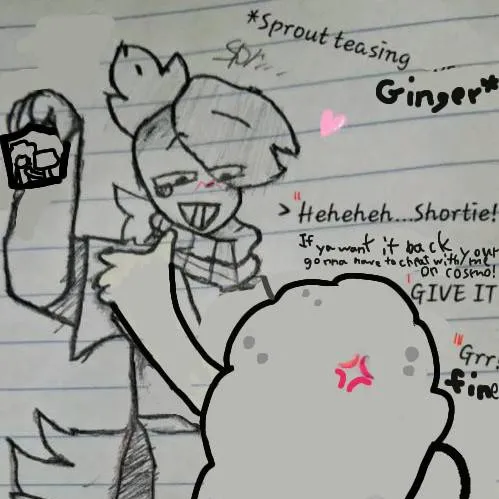 *Sprout teasing
Ginger*
> "Heheheh...Shortie!
If ya want it back your
gonna have to cheat with me
on cosmo!
"GIVE IT
"Grr!
fine